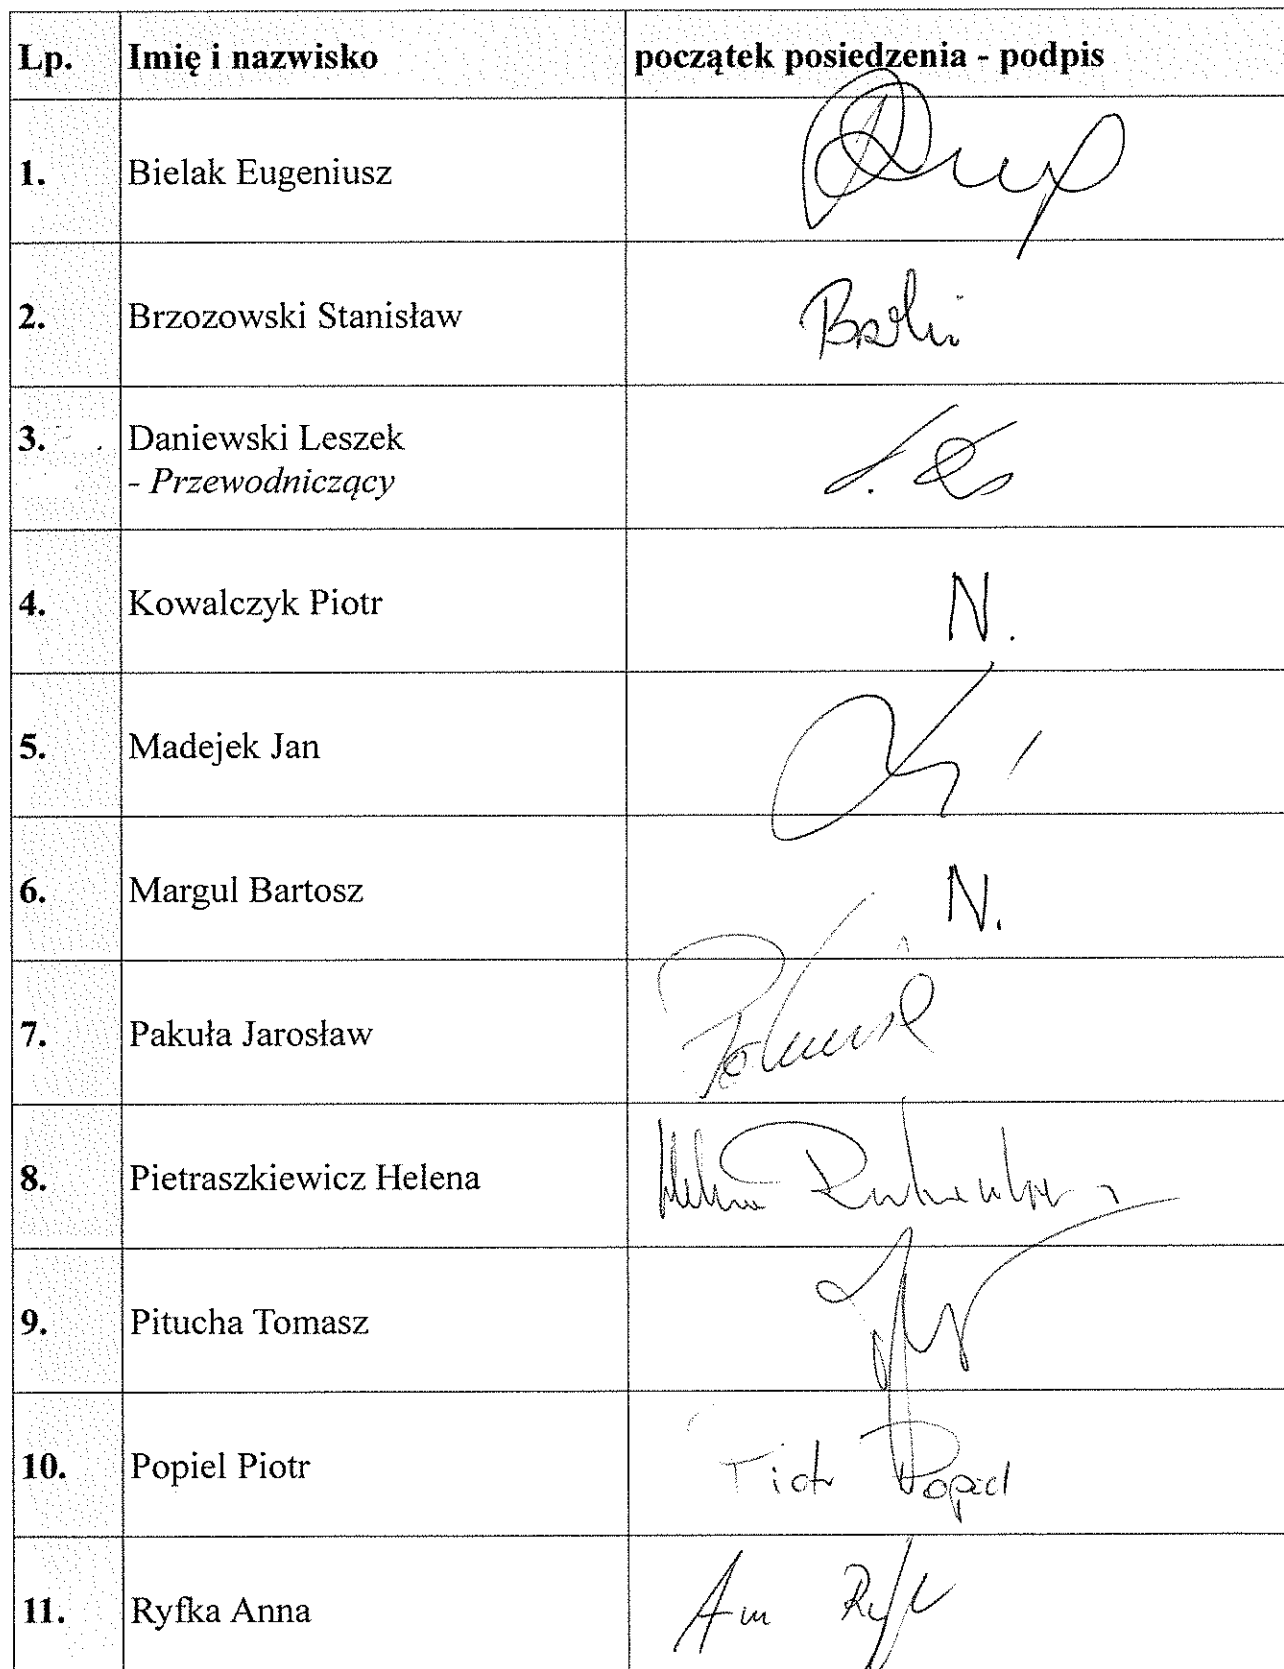 Lp. Imię i nazwisko początek posiedzenia - podpis
1. Bielak Eugeniusz
2. Brzozowski Stanisław
3. Daniewski Leszek
- Przewodniczący
4. Kowalczyk Piotr N.
5. Madejek Jan
6. Margul Bartosz N.
7. Pakuła Jarosław
8. Pietraszkiewicz Helena
9. Pitucha Tomasz
10. Popiel Piotr Piotr Popiel
11. Ryfka Anna